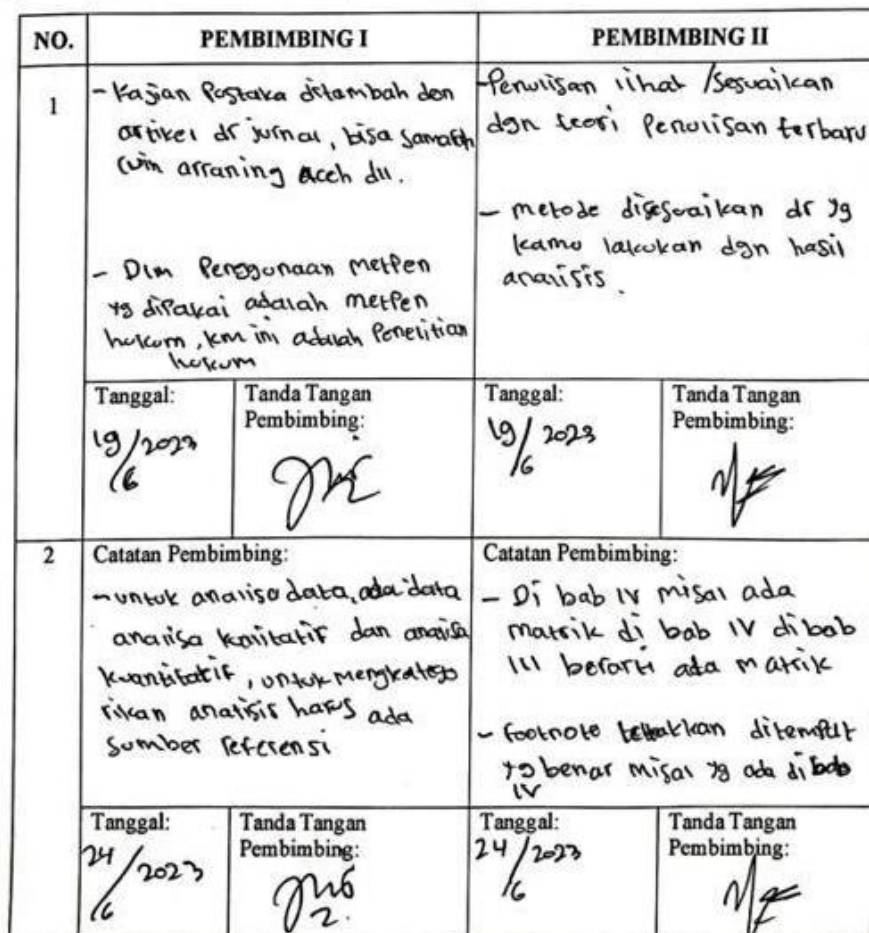 NO.
PEMBIMBING I
PEMBIMBING II
1
- Kajian Pustaka ditambah dan
artikel dr jurnal, bisa
uin arraning Aceh dll.
- Dlm Penggunaan MetPen
yg diPakai adalah metPen
hukum, km ini adalah Penelitian
hukum
- Penulisan lihat /Sesuaikan
dgn teori Penulisan terbaru
- metode disesuaikan dr yg
kamu lakukan dgn hasil
analisis.
Tanggal:
19/6 2023
Tanda Tangan
Pembimbing:
Tanggal:
19/6 2023
Tanda Tangan
Pembimbing:
2
Catatan Pembimbing:
- untuk analisa data, ada data
analisa kualitatif dan analisa
kuantitatif, untuk mengkatego
rikan analisis harus ada
Sumber referensi
Catatan Pembimbing:
- Di bab IV misal ada
matrik di bab IV di bab
III berarti ada matrik
- footnote letakkan ditempat
yg benar misal yg ada di bab
IV
Tanggal:
24/6 2023
Tanda Tangan
Pembimbing:
2.
Tanggal:
24/6 2023
Tanda Tangan
Pembimbing: